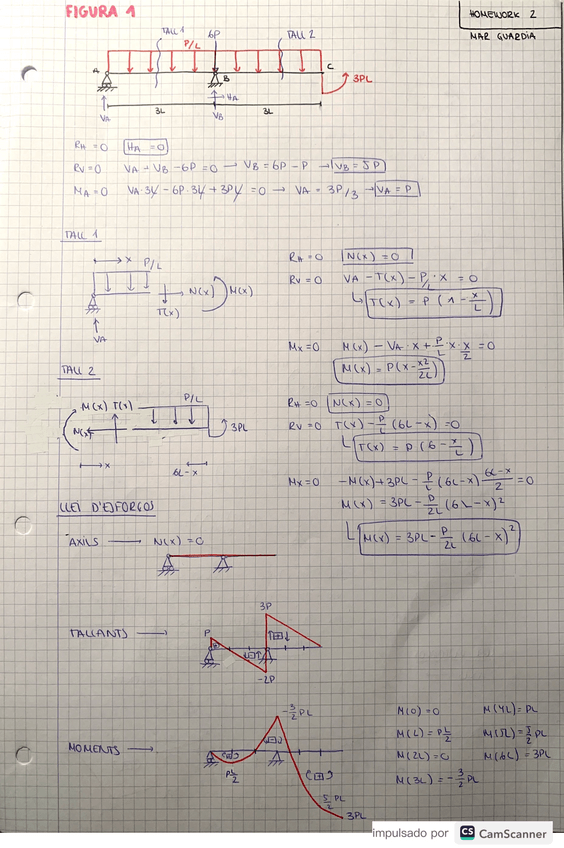 FIGURA 1
HOMEWORK 2
MAR GUARDIA
TALL 1
6P
TALL 2
P/L
A
B
C
3PL
HA
3L
3L
VA
VB
RH=0 HA=0
RV=0 VA + VB - 6P = 0 → VB = 6P - P → VB = 5P
MA=0 VA·3L - 6P·3L + 3PL = 0 → VA = 3P/3 → VA = P
TALL 1
x
P/L
N(x)
M(x)
T(x)
VA
RH=0 N(x) = 0
RV=0 VA - T(x) - P/L · x = 0
T(x) = P (1 - x/L)
Mx=0 M(x) - VA·x + P/L · x · x/2 = 0
M(x) = P(x - x²/2L)
TALL 2
M(x) T(x)
P/L
N(x)
3PL
x
6L-x
RH=0 N(x) = 0
RV=0 T(x) - P/L (6L-x) = 0
T(x) = P (6 - x/L)
Mx=0 -M(x) + 3PL - P/L (6L-x) 6L-x/2 = 0
M(x) = 3PL - P/2L (6L-x)²
M(x) = 3PL - P/2L (6L-x)²
LLEI D'ESFORÇOS
AXILS → N(x) = 0
TALLANTS →
P
3P
-2P
MOMENTS →
-3/2 PL
PL/2
5/2 PL
3PL
M(0) = 0 M(4L) = PL
M(L) = PL/2 M(5L) = 5/2 PL
M(2L) = 0 M(6L) = 3PL
M(3L) = -3/2 PL
impulsado por CS CamScanner